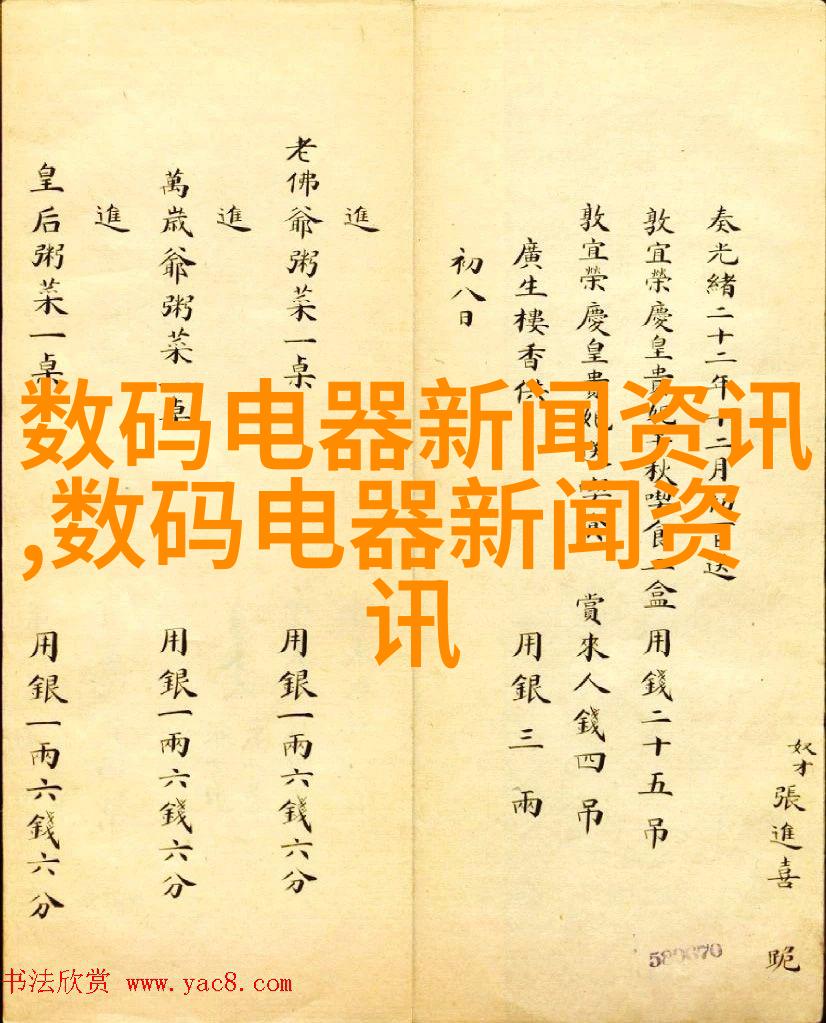 奴才張進喜 跪
奏光緒二十二年十二月初日送
敦宜榮慶皇貴妃千秋喫食一盒 用錢二十五吊
敦宜榮慶皇貴妃 賞來人錢四吊
廣生樓香供 用銀三兩
初八日
進
老佛爺粥菜一桌 用銀一兩六錢六分
進
萬歲爺粥菜一桌 用銀一兩六錢六分
進
皇后粥菜一桌 用銀一兩六錢六分
数码电器新闻资讯
,数码电器新闻资
讯
书法欣赏 www.yac8.com